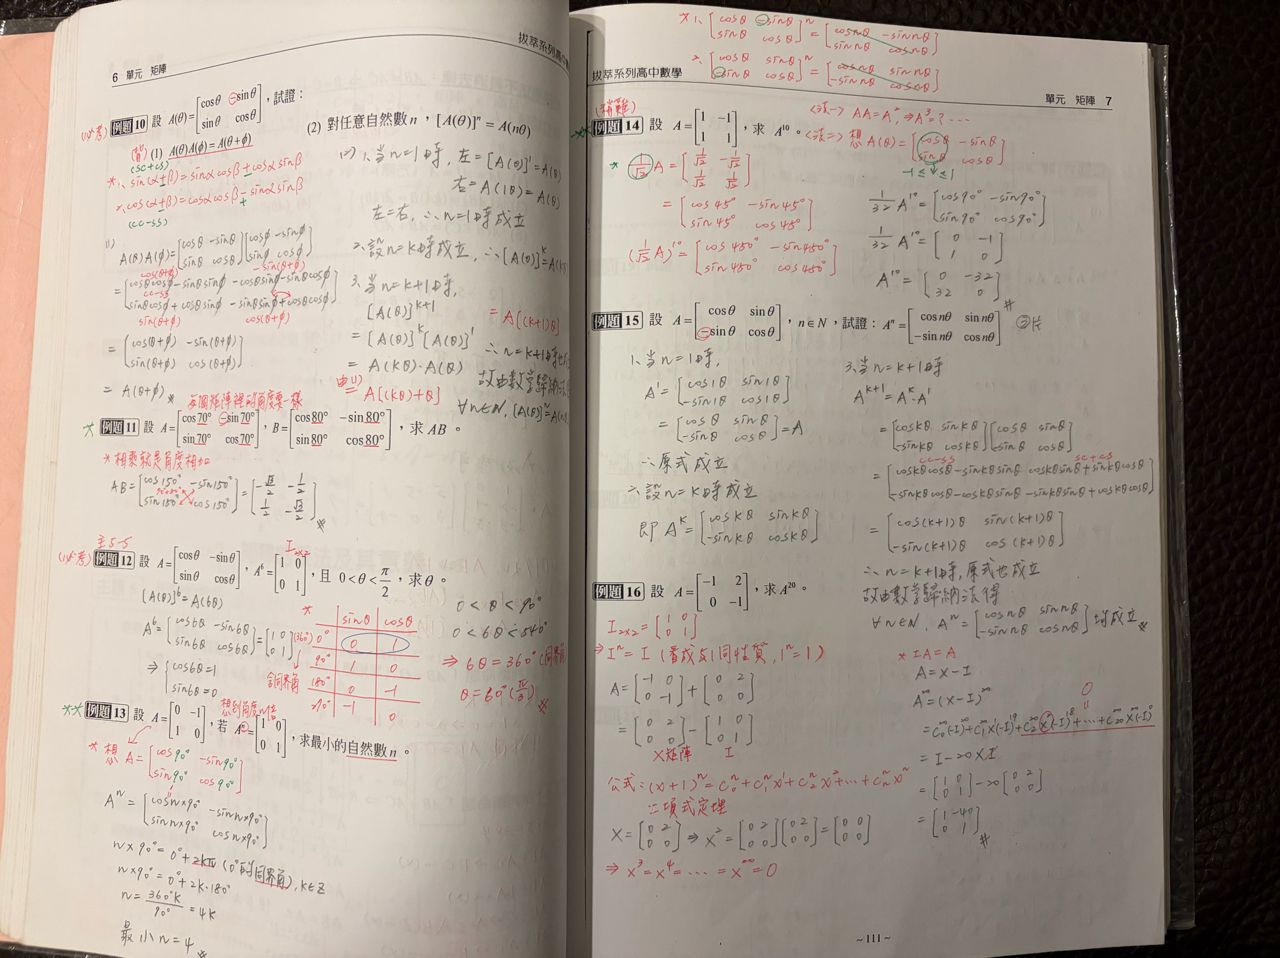 6 單元 矩陣
拔萃系列高中數學
(必考) 例題10 設 A(θ)=[cosθ -sinθ; sinθ cosθ],試證:
(背) (1) A(θ)A(φ)=A(θ+φ)
(2) 對任意自然數 n,[A(θ)]ⁿ = A(nθ)
(sc+cs)
*1. sin(α±β)=sinαcosβ±cosαsinβ
2. cos(α±β)=cosαcosβ-sinαsinβ
+
(cc-ss)
(1)
A(θ)A(φ)=[cosθ -sinθ; sinθ cosθ][cosφ -sinφ; sinφ cosφ]
cos(θ+φ) -sin(θ+φ)
=[cosθcosφ-sinθsinφ -cosθsinφ-sinθcosφ; sinθcosφ+cosθsinφ -sinθsinφ+cosθcosφ]
cc-ss
sin(θ+φ) cos(θ+φ)
=[cos(θ+φ) -sin(θ+φ); sin(θ+φ) cos(θ+φ)]
= A(θ+φ)
(2) 1. 當n=1時, 左=[A(θ)]¹=A(θ)
右=A(1θ)=A(θ)
左=右, ∴n=1時成立
2. 設n=k時成立, ∴[A(θ)]ᵏ=A(k
3. 當n=k+1時,
[A(θ)]ᵏ⁺¹
=[A(θ)]ᵏ[A(θ)]¹
= A(kθ)·A(θ)
由(1) A[(kθ)+θ]
= A[(k+1)θ]
∴n=k+1時也
故由數學歸納法
∀n∈N, [A(θ)]ⁿ=A(n
每個矩陣裡的角度要一樣
例題11 設 A=[cos70° -sin70°; sin70° cos70°],B=[cos80° -sin80°; sin80° cos80°],求 AB。
*相乘就是角度相加
AB=[cos150° -sin150°; sin150° cos150°]=[-√3/2 -1/2; 1/2 -√3/2]
(必考) 例題12 設 A=[cosθ -sinθ; sinθ cosθ],A⁶=[1 0; 0 1],且 0<θ<π/2,求θ。
I₂ₓ₂
[A(θ)]⁶=A(6θ)
A⁶=[cos6θ -sin6θ; sin6θ cos6θ]=[1 0; 0 1]
⇒{cos6θ=1
sin6θ=0
* sinθ cosθ
(360°) 0° 0 1
90° 1 0
180° 0 -1
270° -1 0
同界角
0<θ<90°
0<6θ<540°
⇒6θ=360°(同界角
θ=60°(π/3)
** 例題13 設 A=[0 -1; 1 0],若 Aⁿ=[1 0; 0 1],求最小的自然數 n。
*想 A=[cos90° -sin90°; sin90° cos90°]
Aⁿ=[cosn×90° -sinn×90°; sinn×90° cosn×90°]
n×90°=0°+2kπ(0°的同界角), k∈Z
n×90°=0°+2k·180°
n=360°k/90°=4k
最小n=4
*1. [cosθ -sinθ; sinθ cosθ]ⁿ=[cosnθ -sinnθ; sinnθ cosnθ]
2. [cosθ sinθ; -sinθ cosθ]ⁿ=[cosnθ sinnθ; -sinnθ cosnθ]
拔萃系列高中數學
單元 矩陣 7
(稍難)
例題14 設 A=[1 -1; 1 1],求 A¹⁰。
<法一> AA=A², ⇒A³=? ⋯
<法二> 想A(θ)=[cosθ -sinθ; sinθ cosθ]
-1≤ ≤1
* 1/√2 A=[1/√2 -1/√2; 1/√2 1/√2]
=[cos45° -sin45°; sin45° cos45°]
(1/√2 A)¹⁰=[cos450° -sin450°; sin450° cos450°]
1/32 A¹⁰=[cos90° -sin90°; sin90° cos90°]
1/32 A¹⁰=[0 -1; 1 0]
A¹⁰=[0 -32; 32 0]
例題15 設 A=[cosθ sinθ; -sinθ cosθ],n∈N,試證:Aⁿ=[cosnθ sinnθ; -sinnθ cosnθ]
1. 當n=1時,
A¹=[cos1θ sin1θ; -sin1θ cos1θ]
=[cosθ sinθ; -sinθ cosθ]=A
∴原式成立
2. 設n=k時成立
即 Aᵏ=[coskθ sinkθ; -sinkθ coskθ]
3. 當n=k+1時
Aᵏ⁺¹=Aᵏ·A¹
=[coskθ sinkθ; -sinkθ coskθ][cosθ sinθ; -sinθ cosθ]
cc-ss sc+cs
=[coskθcosθ-sinkθsinθ coskθsinθ+sinkθcosθ; -sinkθcosθ-coskθsinθ -sinkθsinθ+coskθcosθ]
=[cos(k+1)θ sin(k+1)θ; -sin(k+1)θ cos(k+1)θ]
∴n=k+1時,原式也成立
故由數學歸納法得
∀n∈N, Aⁿ=[cosnθ sinnθ; -sinnθ cosnθ]均成立
例題16 設 A=[-1 2; 0 -1],求 A²⁰。
I₂ₓ₂=[1 0; 0 1]
⇒Iⁿ=I (看成與1同性質, 1ⁿ=1)
A=[-1 0; 0 -1]+[0 2; 0 0]
=[0 2; 0 0]-[1 0; 0 1]
X矩陣 I
公式:(x+1)ⁿ=C₀ⁿ+C₁ⁿx¹+C₂ⁿx²+⋯+Cₙⁿxⁿ
二項式定理
X=[0 2; 0 0]⇒X²=[0 2; 0 0][0 2; 0 0]=[0 0; 0 0]
⇒X³=X⁴=⋯⋯=X²⁰=0
*IA=A
A=X-I
A²⁰=(X-I)²⁰
0
=C₀²⁰(-I)²⁰+C₁²⁰X¹(-I)¹⁹+C₂²⁰X²(-I)¹⁸+⋯+C₂₀²⁰X²⁰(-I)⁰
=I-20X·I
=[1 0; 0 1]-20[0 2; 0 0]
=[1 -40; 0 1]
~111~